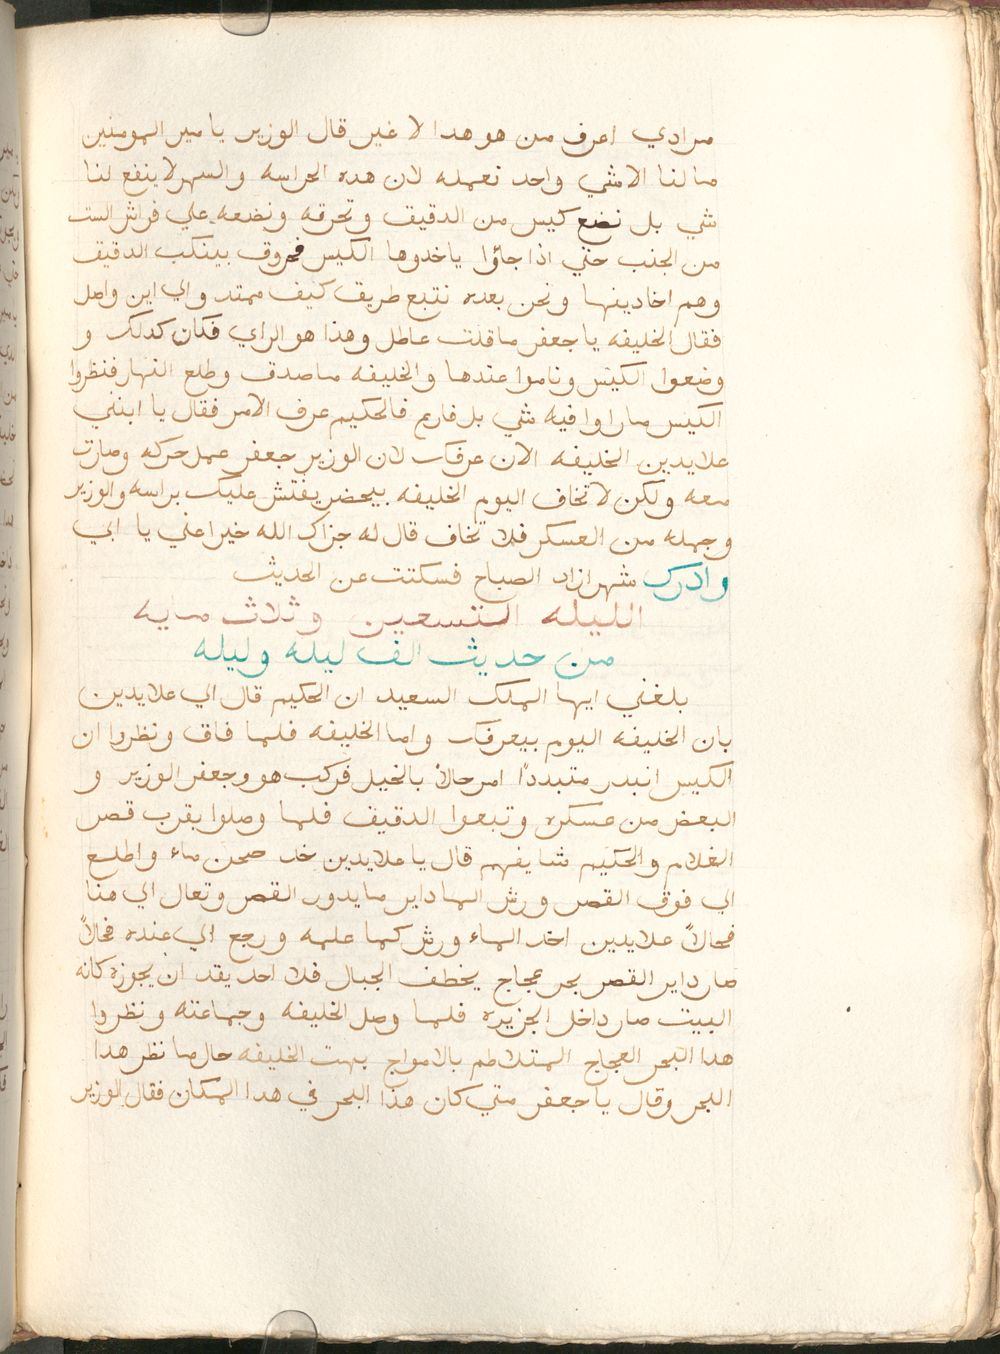 مرادي اعرف من هو هدا لا غير قال الوزير يا مير المومنين
ما لنا الا شي واحد نعمله لان هده الحراسه والسهر لا ينفع لنا
شي بل نضع كيس من الدقيق وتحرقه ونضعه علي فراش الست
من الجنب حتي اذا جاؤا ياخدوها الكيس محروق بينكب الدقيق
وهم اخادينها ونحن بعده نتبع طريق كيف ممتد والي اين واصل
فقال الخليفه يا جعفر ما قلت عاطل وهذا هو الراي فكان كدلك و
وضعوا الكيس وناموا عندها والخليفه ما صدق وطلع النهار فنظروا
الكيس ما راوا فيه شي بل فارغ فالحكيم عرف الامر فقال يا ابنني
علايدين الخليفه الان عرفك لان الوزير جعفر عمل حركه وصارت
معه ولكن لا تخاف اليوم الخليفه بيحضر يفتش عليك براسه والوزير
وجمله من العسكر فلا تخاف قال له جزاك الله خيرا عني يا ابي
وادرك شهرازاد الصباح فسكتت عن الحديث
الليله التسعين وثلاث مايه
من حديث الف ليله وليله
بلغني ايها الملك السعيد ان الحكيم قال الي علايدين
بان الخليفه اليوم بيعرفك واما الخليفه فلما فاق ونظروا ان
الكيس انبدر متبددًا امر حالاً بالخيل فركب هو وجعفر الوزير و
البعض من عسكره وتبعوا الدقيق فلما وصلوا بقرب قصر
الغلام والحكيم شايفهم قال يا علايدين خد صحن ماء واطلع
الي فوق القصر ورش الما داير مايدور القصر وتعال الي هنا
فحالاً علايدين اخد الماء ورش كما علمه ورجع الي عنده فحالاً
صار داير القصر بحر عجاج يخطف الجبال فلا احد يقد ان يجوزه كانه
البيت صار داخل الجزيره فلما وصل الخليفه وجماعته ونظروا
هدا البحر العجاج المتلاطم بالامواج بهت الخليفه حال ما نظر هدا
البحر وقال يا جعفر متي كان هذا البحر في هدا المكان فقال الوزير